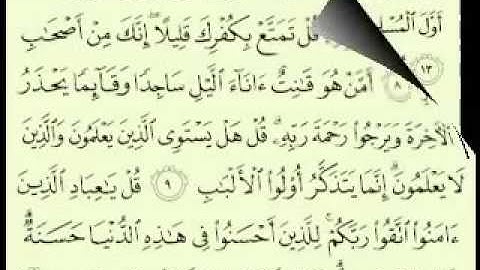 أَوَّلَ ٱلْمُسْلِ قُلْ تَمَتَّعْ بِكُفْرِكَ قَلِيلًا ۖ إِنَّكَ مِنْ أَصْحَٰبِ
١٣ ٨ أَمَّنْ هُوَ قَٰنِتٌ ءَانَآءَ ٱلَّيْلِ سَاجِدًا وَقَآئِمًا يَحْذَرُ
ٱلْءَاخِرَةَ وَيَرْجُوا۟ رَحْمَةَ رَبِّهِۦ ۗ قُلْ هَلْ يَسْتَوِى ٱلَّذِينَ يَعْلَمُونَ وَٱلَّذِينَ
لَا يَعْلَمُونَ ۗ إِنَّمَا يَتَذَكَّرُ أُو۟لُوا۟ ٱلْأَلْبَٰبِ ٩ قُلْ يَٰعِبَادِ ٱلَّذِينَ
ءَامَنُوا۟ ٱتَّقُوا۟ رَبَّكُمْ ۚ لِلَّذِينَ أَحْسَنُوا۟ فِى هَٰذِهِ ٱلدُّنْيَا حَسَنَةٌ ۗ